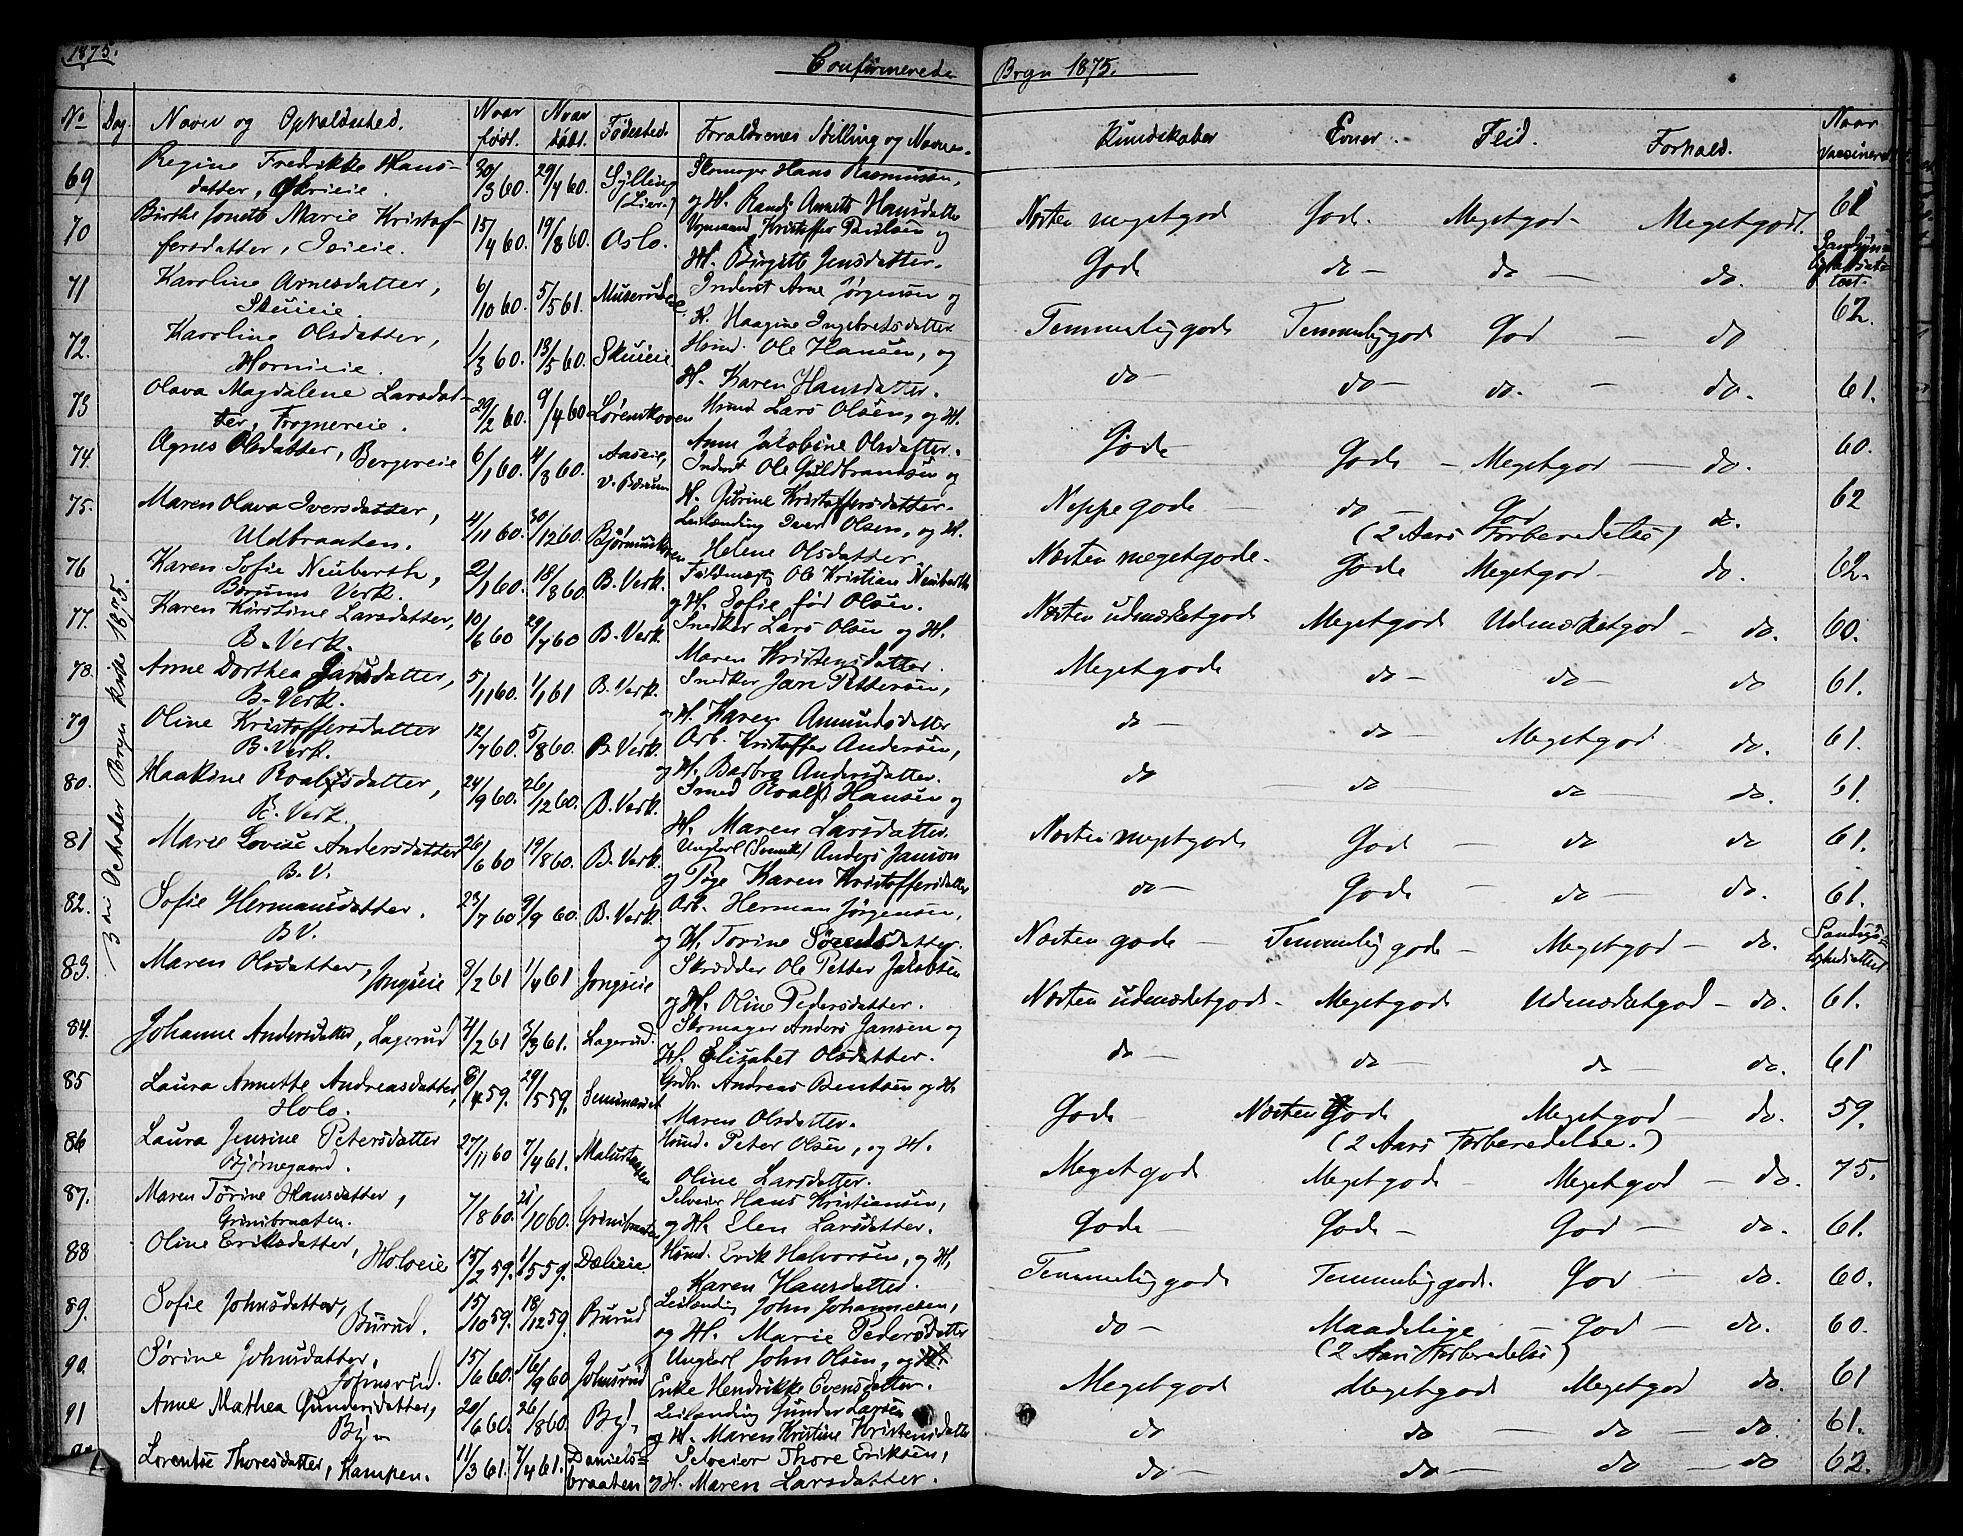 1875.
Confirmerede Brgn 1875.
No Dag. Navn og Opholdssted. Naar født. Naar døbt. Fødested. Forældrenes Stilling og Navne. Kundskaber Evner. Flid. Forhold. Naar Vaccineret
3die October Brgn kirke 1875.
69 Regine Fredrikke Hans- 30/3 60. 29/4 60. Sylling Skomager Hans Rasmussen,
datter, (Lier.) og H. Randi Annette Hansdatter Næsten megetgod God. Megetgod Megetgodt. 61
70 Birthe Jonette Marie Kristof- 15/4 60. 19/8 60. Oslo. Vognmand Kristoffer Paulsen og
fersdatter, H. Birgitte Jensdatter. Gode do do do.
71 Karoline Arnesdatter, 6/10 60. 5/5 61. Inderst Arne Jørgensen og
Skuieie. H. Haagine Ingebretsdatter Temmeliggode Temmeliggode God do 62.
72. Karoline Olsdatter, 1/3 60. 13/5 60. Skuieie Hsmd. Ole Hansen, og
Hornieie. H. Karen Hansdatter. do do do. do. 61.
73 Olava Magdalene Larsdat- 29/2 60. 9/4 60 Lørenskoven Hsmd Lars Olsen, og H.
ter, Fognereie. Anne Jakobine Olsdatter. Gode Gode Megetgod do. 60.
74. Agnes Olsdatter, Bergereie 6/1 60. 4/3 60. Aaseie, Inderst Ole Guldbrandsen og
v. Bærum H. Gurine Kristoffersdatter. Neppe gode do God do. 62
(2 Aars Forberedelse)
75. Maren Olava Iversdatter, 4/11 60. 30/12 60. Leilænding Iver Olsen, og H.
Udbraaten. Helene Olsdatter Næsten megetgode. Gode Megetgod do. 62.
76 Karen Sofie Neuberth, 2/1 60. 18/3 60. B. Verk. Fuldmægtig Ole Kristian Neuberth
Bærums Verk. og H. Sofie fød Olsen. Næsten udmærketgode Megetgode Udmærketgod do. 60.
77. Karen Kirstine Larsdatter, 10/6 60 29/7 60 B. Verk Snedker Lars Olsen og H.
B. Verk. Maren Kristensdatter. Megetgode do do do 61.
78. Anne Dorthea Jansdatter, 5/11 60. 1/1 61 B. Verk. Snedker Jan Pettersen,
B. Verk. og H. Karen Amundsdatter do do Megetgod do. 61.
79 Oline Kristoffersdatter 12/7 60. 5/8 60. B. Verk. Arb. Kristoffer Andersen,
B. Verk. og H. Barbra Andersdatter. do do do do. 61.
80. Haakine Roalfsdatter, 24/9 60. 26/12 60. B. Verk. Smed Roalf Hansen og
B. Verk. H. Maren Larsdatter. Næsten megetgode God do do 61.
81 Marie Lovise Andersdatter 26/6 60 19/8 60. B. Verk. Ungkarl Anders Janson
B. V. og Pige Karen Kristoffersdatter do Gode do do. 61.
82. Sofie Hermansdatter. 23/7 60 9/9 60. B. Verk. Arb. Herman Jørgensen,
B V. og H. Torine Sørensdatter. Næsten gode Temmelig gode Megetgod do.
83. Maren Olsdatter, Jongseie 8/2 61 1/4 61 Jongseie Skrædder Ole Petter Jakobsen
og H. Oline Pedersdatter. Næsten udmærketgode. Megetgode Udmærketgod do. 61.
84. Johanne Andersdatter, Lagerud 4/2 61 3/3 61. Lagerud. Skomager Anders Jansen og
H. Elizabet Olsdatter. do do do do. 61
85 Laura Annette Andreasdatter, 8/4 59. 29/5 59. Seminariet Grdbr. Andreas Bentsen og H.
Holo. Maren Olsdatter. Gode Næsten Gode Megetgod do. 59.
(2 Aars Forberedelse.)
86 Laura Jensine Petersdatter 27/11 60 7/4 61. Hsmd. Peter Olsen, og H.
Bjørnegaard. Oline Larsdatter. Megetgode Megetgode Megetgod do. 75.
87. Maren Torine Hansdatter, 7/8 60. 21/10 60. Grinibraaten Selveier Hans Kristiansen,
Grinibraaten. og H. Elen Larsdatter. Gode Gode God do. 61.
88 Oline Eriksdatter, Holoeie 15/2 59. 1/5 59. Dælieie Hsmd. Erik Halvorsen, og H,
Karen Hansdatter. Temmeliggode Temmeliggode. God do. 60.
89. Sofie Johnsdatter, Burud. 15/10 59. 18/12 59. Burud Leilænding John Johannesen,
og H. Marie Pedersdatter do Maadelige God do. 60.
(2 Aars Forberedelse)
90. Sørine Johnsdatter, Johnsrud. 15/6 60. 16/9 60 Johnsrud Ungkarl John Olsen, og H.
Enke Hendrikke Evensdatter. Megetgode Megetgode Megetgod do. 61
91 Anne Mathea Gundersdatter, By 20/6 60. 26/8 60. By, Leilænding Gunder Larsen
og H. Maren Kristine Kristensdatter do do do do. 61.
92 Lorentse Thoresdatter, Kampen. 11/3 61. 7/4 61. Daniels= Selveier Thore Eriksen,
braaten og H. Maren Larsdatter. do do do do 62.